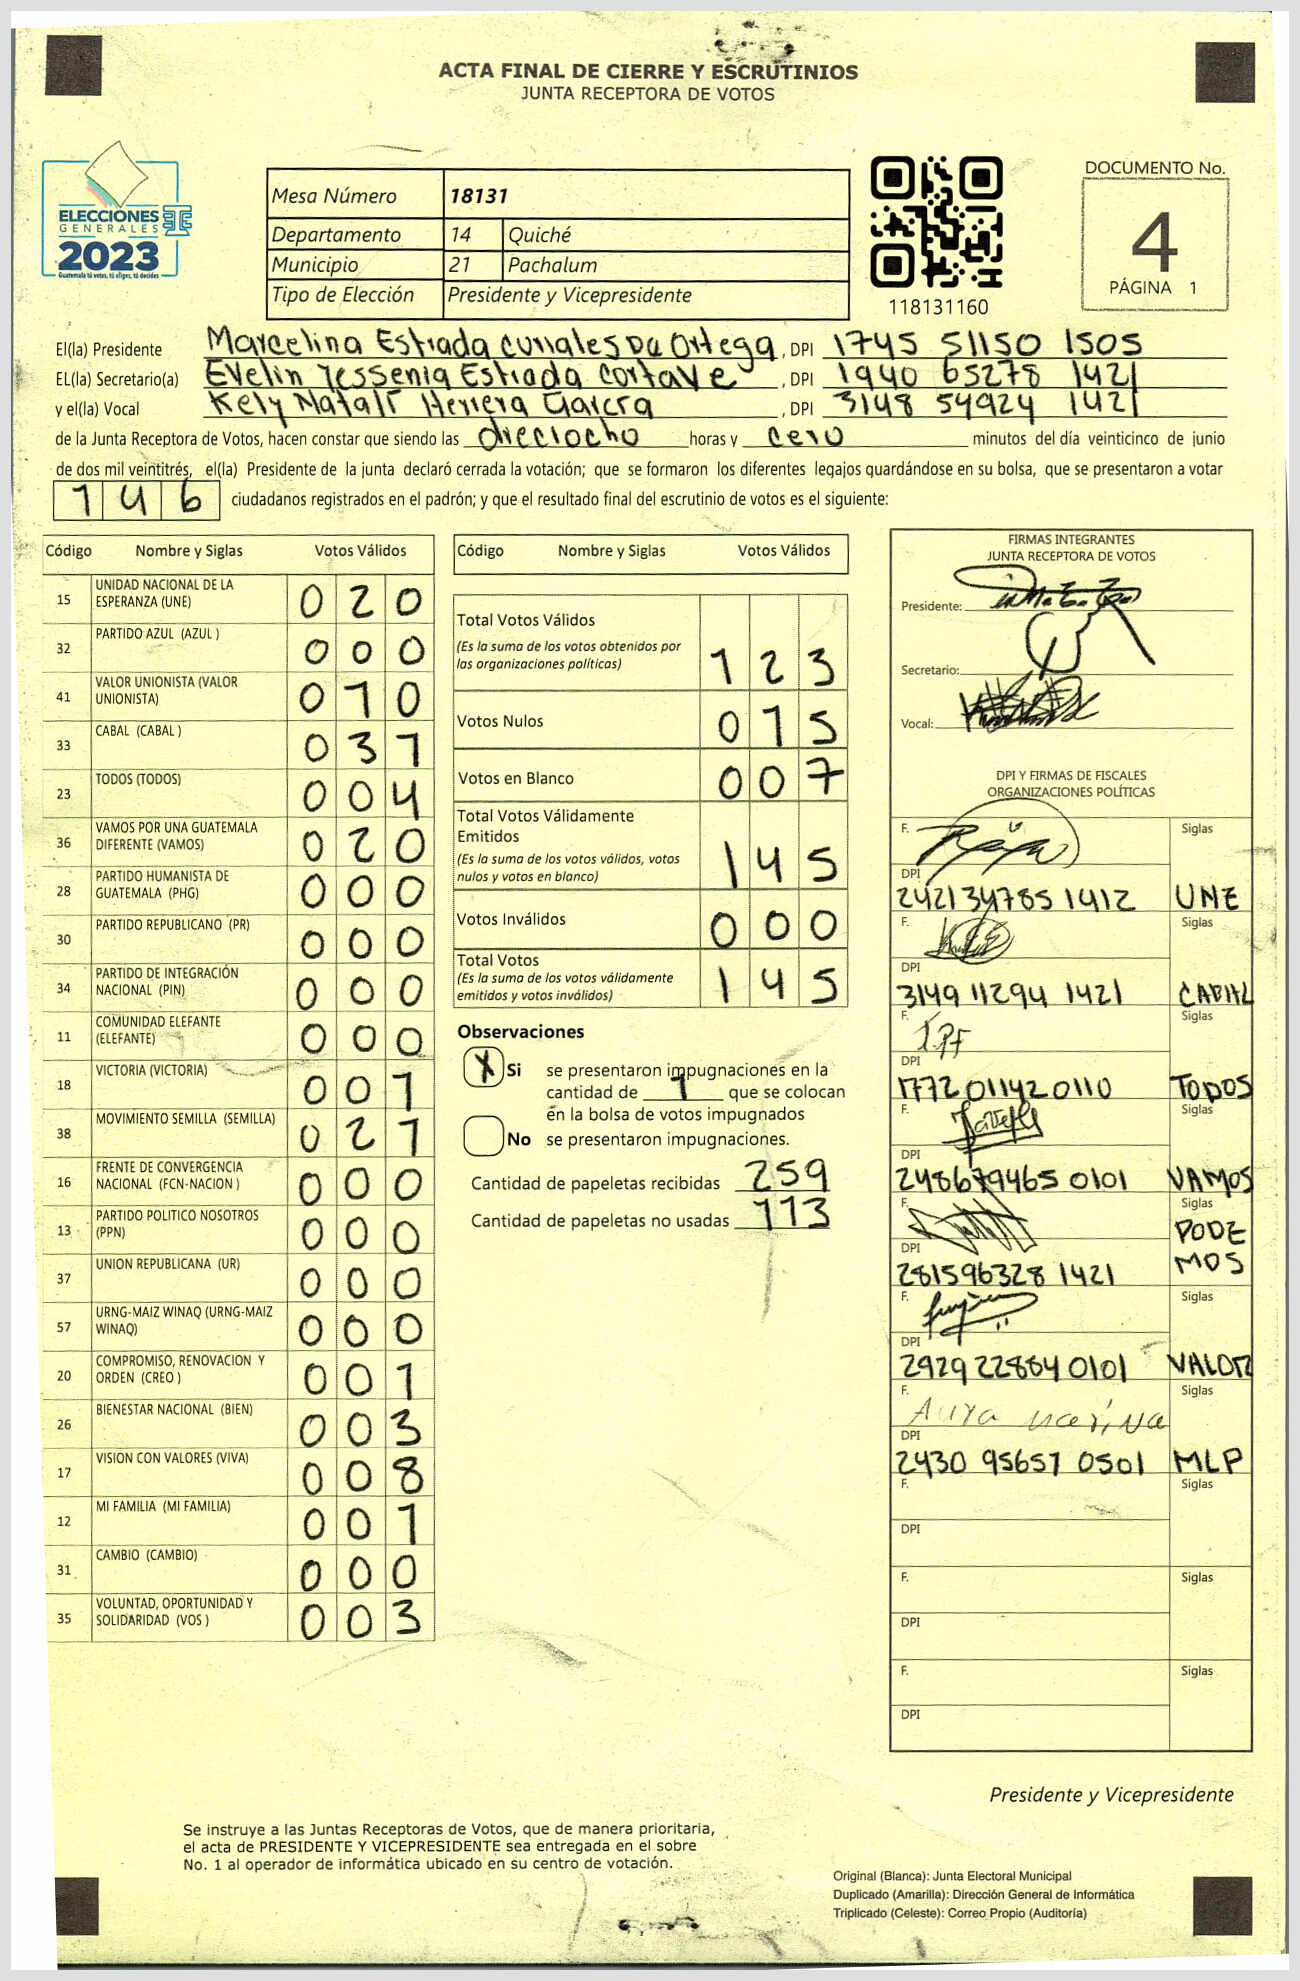 ACTA FINAL DE CIERRE Y ESCRUTINIOS
JUNTA RECEPTORA DE VOTOS
ELECCIONES
GENERALES
2023
Guatemala tú votas, tú eliges, tú decides
Mesa Número 18131
Departamento 14 Quiché
Municipio 21 Pachalum
Tipo de Elección Presidente y Vicepresidente
118131160
DOCUMENTO No.
4
PÁGINA 1
El(la) Presidente Marcelina Estrada De Ortega, DPI 1745 51150 1505
EL(la) Secretario(a) Evelin Yessenia Estrada Cortave, DPI 1940 65278 1421
y el(la) Vocal Kely Natalí Herrera García, DPI 3148 54924 1421
de la Junta Receptora de Votos, hacen constar que siendo las dieciocho horas y cero minutos del día veinticinco de junio
de dos mil veintitrés, el(la) Presidente de la junta declaró cerrada la votación; que se formaron los diferentes legajos guardándose en su bolsa, que se presentaron a votar
146 ciudadanos registrados en el padrón; y que el resultado final del escrutinio de votos es el siguiente:
Código Nombre y Siglas Votos Válidos
15 UNIDAD NACIONAL DE LA ESPERANZA (UNE) 020
32 PARTIDO AZUL (AZUL ) 000
41 VALOR UNIONISTA (VALOR UNIONISTA) 010
33 CABAL (CABAL ) 031
23 TODOS (TODOS) 004
36 VAMOS POR UNA GUATEMALA DIFERENTE (VAMOS) 020
28 PARTIDO HUMANISTA DE GUATEMALA (PHG) 000
30 PARTIDO REPUBLICANO (PR) 000
34 PARTIDO DE INTEGRACIÓN NACIONAL (PIN) 000
11 COMUNIDAD ELEFANTE (ELEFANTE) 000
18 VICTORIA (VICTORIA) 001
38 MOVIMIENTO SEMILLA (SEMILLA) 021
16 FRENTE DE CONVERGENCIA NACIONAL (FCN-NACION ) 000
13 PARTIDO POLITICO NOSOTROS (PPN) 000
37 UNION REPUBLICANA (UR) 000
57 URNG-MAIZ WINAQ (URNG-MAIZ WINAQ) 000
20 COMPROMISO, RENOVACION Y ORDEN (CREO ) 001
26 BIENESTAR NACIONAL (BIEN) 003
17 VISION CON VALORES (VIVA) 008
12 MI FAMILIA (MI FAMILIA) 001
31 CAMBIO (CAMBIO) 000
35 VOLUNTAD, OPORTUNIDAD Y SOLIDARIDAD (VOS ) 003
Código Nombre y Siglas Votos Válidos
Total Votos Válidos
(Es la suma de los votos obtenidos por las organizaciones políticas) 123
Votos Nulos 015
Votos en Blanco 007
Total Votos Válidamente Emitidos
(Es la suma de los votos válidos, votos nulos y votos en blanco) 145
Votos Inválidos 000
Total Votos
(Es la suma de los votos válidamente emitidos y votos inválidos) 145
Observaciones
X Si se presentaron impugnaciones en la
cantidad de 1 que se colocan
en la bolsa de votos impugnados
No se presentaron impugnaciones.
Cantidad de papeletas recibidas 259
Cantidad de papeletas no usadas 113
FIRMAS INTEGRANTES
JUNTA RECEPTORA DE VOTOS
Presidente:
Secretario:
Vocal:
DPI Y FIRMAS DE FISCALES
ORGANIZACIONES POLÍTICAS
F. Siglas
DPI
2421 34785 1412 UNE
F. Siglas
DPI
3149 11294 1421 CABAL
F. Siglas
DPI
1772 01142 0110 TODOS
F. Siglas
DPI
2486 79465 0101 VAMOS
F. Siglas
DPI
281596328 1421 PODEMOS
F. Siglas
DPI
2929 22884 0101 VALOR
F. Aura Marina Siglas
DPI
2430 95657 0501 MLP
F. Siglas
DPI
F. Siglas
DPI
F. Siglas
DPI
Presidente y Vicepresidente
Se instruye a las Juntas Receptoras de Votos, que de manera prioritaria,
el acta de PRESIDENTE Y VICEPRESIDENTE sea entregada en el sobre
No. 1 al operador de informática ubicado en su centro de votación.
Original (Blanca): Junta Electoral Municipal
Duplicado (Amarilla): Dirección General de Informática
Triplicado (Celeste): Correo Propio (Auditoría)